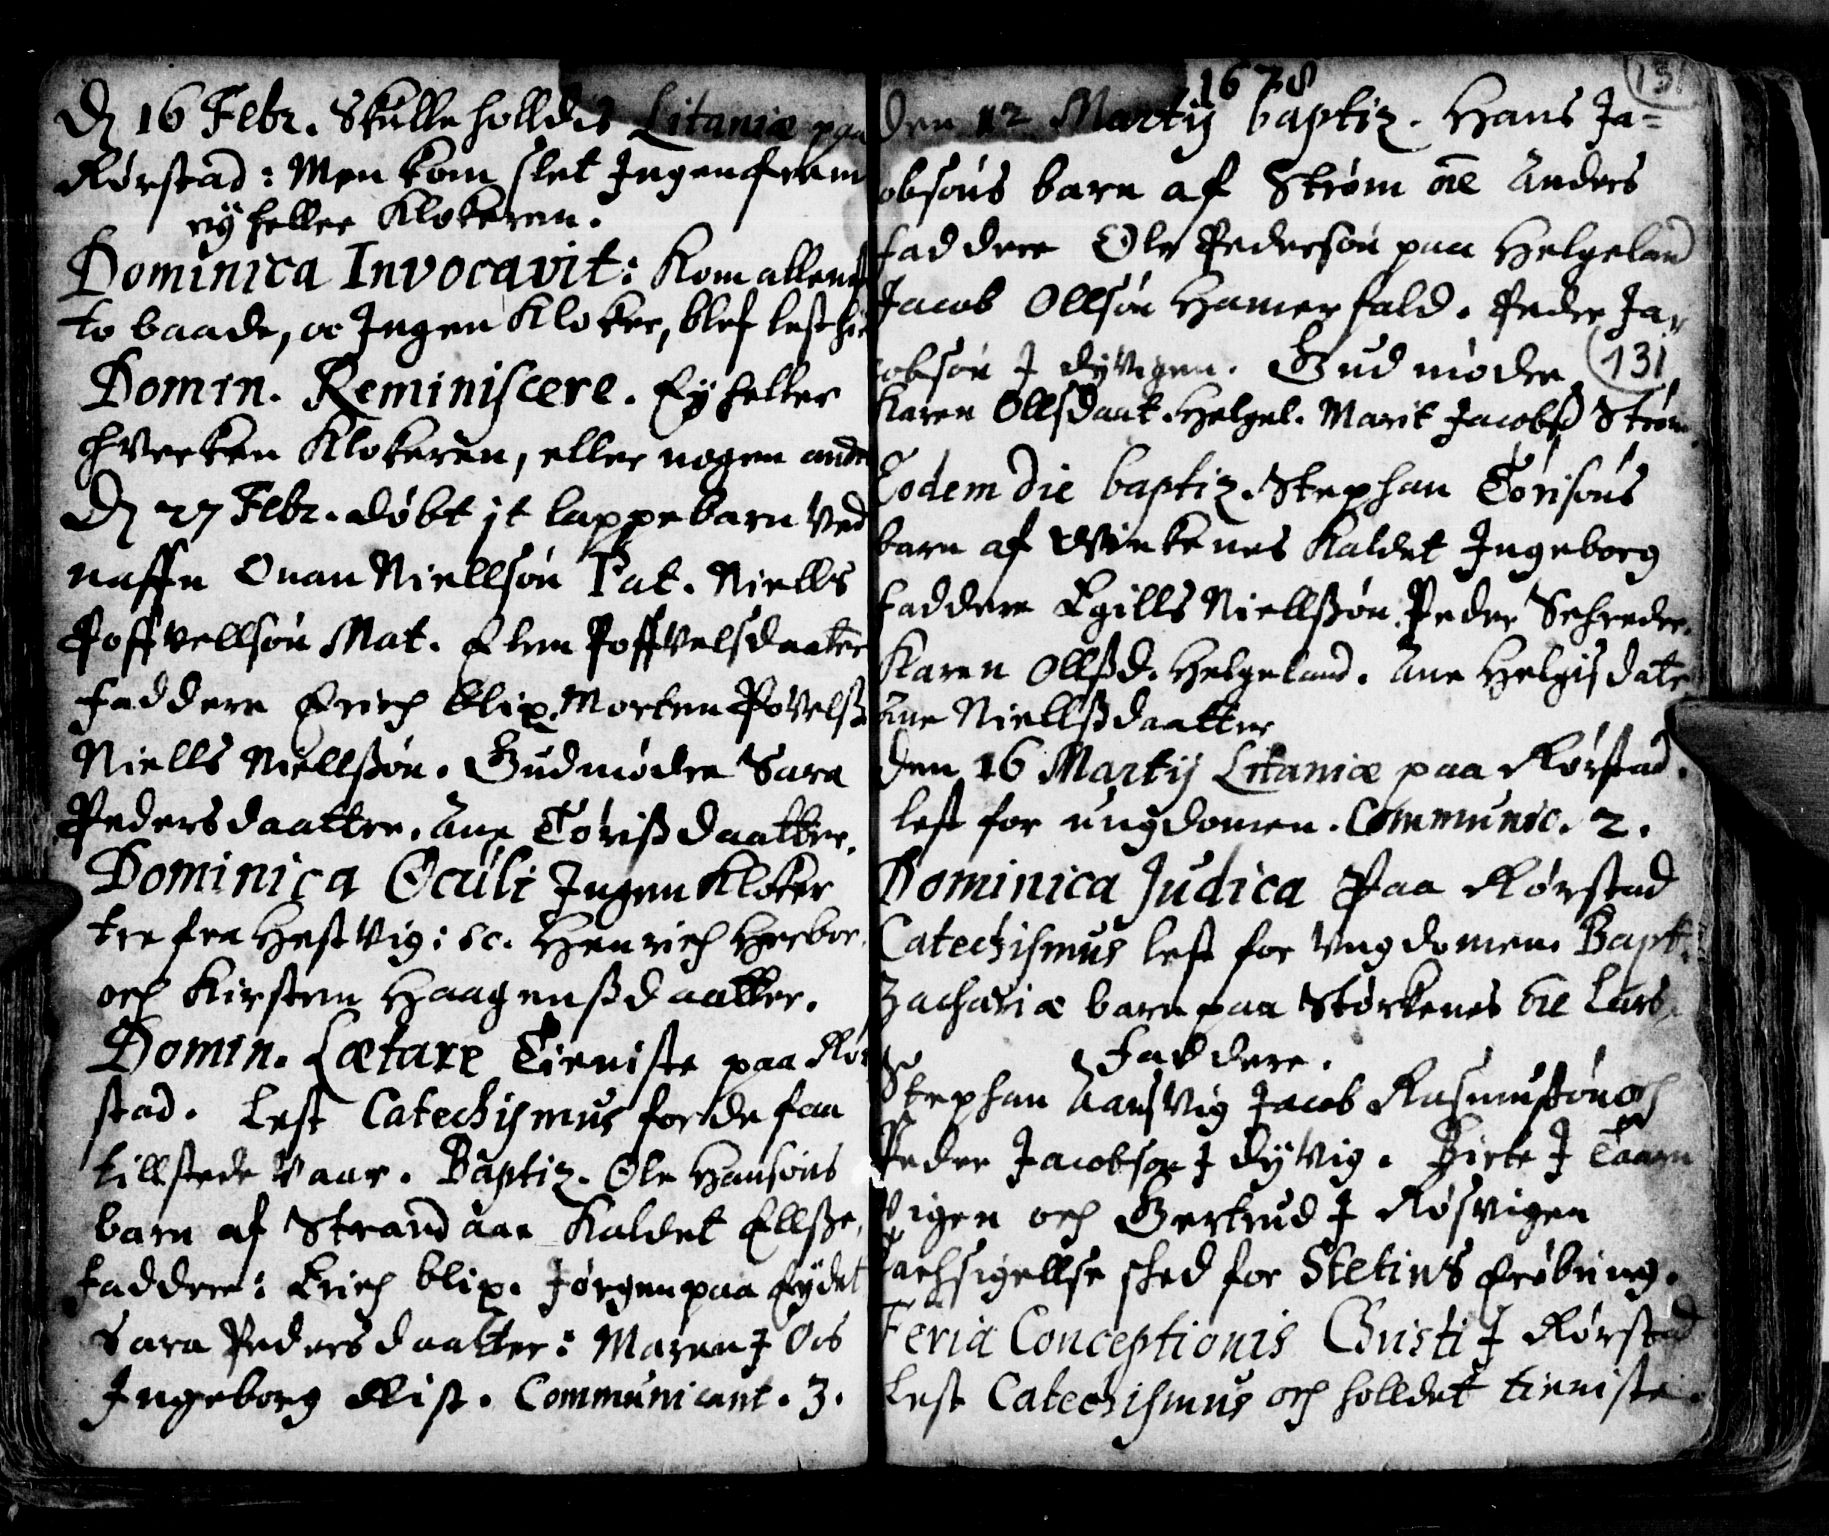 D 16 Febr. Skulle holldis Litaniæ paa
Rørstad: Men kom slet Ingen frem
ey heller Klokeren.
Dominica Invocavit: Kom alleniste
to baade, oc Ingen Kloker, blef lest hie
Domin. Reminiscere. Ey heller
hverken Klokeren, eller nogen ande
D 27 Febr. døbt it lappebarn ved
naffn Onan Niellsøn Pat. Niells
Poffvellsøn Mat. Elen Poffvelsdaatter
Faddere Erich Blix. Morten Povelsß
Niells Niellsßøn. Gudmødre Sara
Pedersdaatter. Ane Torisßdaatter.
Dominica Oculi Ingen Kloker
tre fra Hestvig: sc. Henrich Herbor.
och Kirsten Haagensßdaatter.
Domin. Lætare Tieniste paa Rør
stad. Lest Catechismus for de faa
tillstede vaar. Baptiz. Ole Hansøns
barn af Strandaae Kaldet Ellsße.
Faddre: Erich blix. Jørgen paa Eydet
Sara Pedersdaatter: Maren J Oos
Ingeborg Rist. Communicant. 3.
1678
131
den 12 Martij baptiz. Hans Ja=
obsøns barn af Strøm nōe Anders
faddere Ole Pedersøn paa Helgeland
Jacob Ollsøn Hamerfald. Peder Ja
cobsøn J dyvigen. Gudmødre 131
Karen Ollsdaat. Helgel. Marit Jacobß Strøm.
Eodem die baptiz. Stephan Torisøns
barn af Virkenes Kaldet Ingeborg
faddere Egills Niellsßøn, Peder Schreder.
Karen Ollßd. Helgeland. Ane Helgisdater
Ane Niellsßdaatter
den 16 Martij Litaniæ paa Rørstad.
lest for ungdomen. Communic. 2.
Dominica Judica Paa Rørstad
Catechismus lest for Vngdomen. Bapt.
Zachariæ barn paa Størkenes nōe Lars.
Faddere.
Stephan Aansvig Jacob Rasmusßøn och
Peder Jacobsøn J dyvig. Birte J Taarn
vigen och Gertrud J Røsvigen
Tachsigellse sked for Stetins Erøbring.
Feria Conceptionis Christi J Rørstad
Lest Catechismus och holldet tieniste.